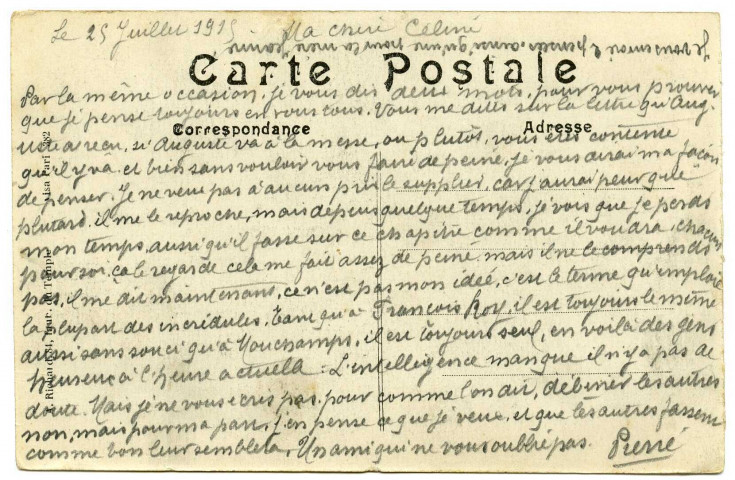 Le 25 Juillet 1915. Ma cheri Céliné
Carte Postale
Par la même occasion, je vous dis deux mots, pour vous prouver
que je pense toujours en vous tous. Vous me dites sur la lettre qu'Aug-
Correspondance
Adresse
uste a recu, si Auguste va à la messe, ou plutôt, vous etes contente
qu'il y va. et bien sans vouloir vous faire de peine, je vous dirai ma façon
de penser. Je ne veux pas a aucun prix le supplier, car j'aurai peur que
plutard, il me le reproche, mais depuis quelque temps, je vois que je perds
mon temps, aussi qu'il fasse sur ce chapitre comme il voudra, chacun
pour soi, ça le regarde cela me fait assez de peiné, mais il ne le comprends
pas, il me dit maintenant, ce n'est pas mon idée, c'est le terme qu'emploie
la plupart des incrédules, tant qu'à François Roy, il est toujours le même
aussi sans souci qu'à Vouchamps, il est toujours seul, en voilà des gens
heureux à l'heure actuelle : L'intelligence manque il n'y a pas de
doute. Mais je ne vous ecris pas pour comme l'on dit, débiner les autres
non, mais pour ma part, j'en pense ce que je veux, et que les autres fassent
comme bon leur semblera, Un ami qui ne vous oublie pas. Pierré